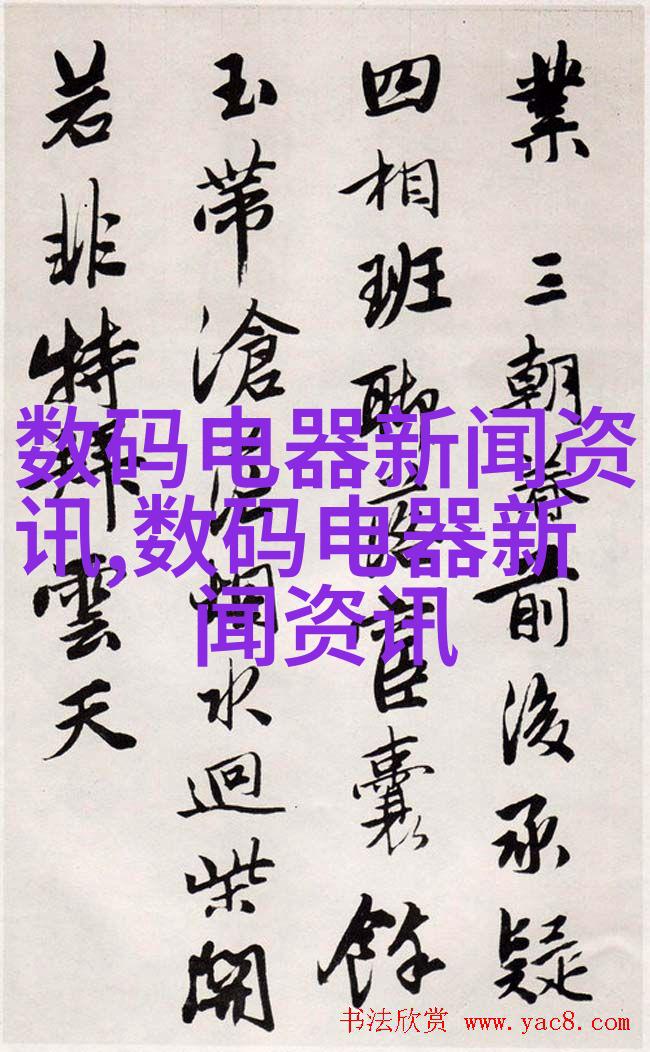 業 三朝 前後承疑
四相班聯 臣囊餘
玉帶滄 水迴柴開
若非特 雲天
数码电器新闻资
讯,数码电器新
闻资讯
书法欣赏 www.yac8.com